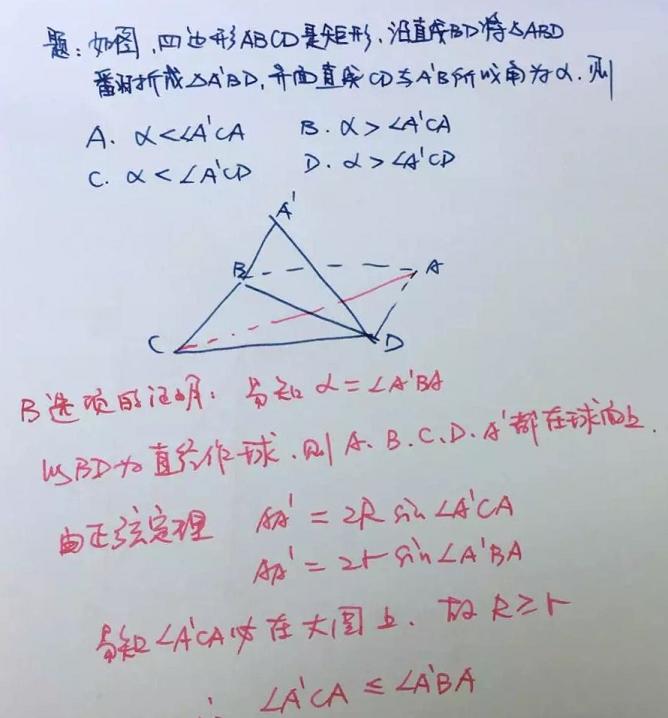 题：如图，四边形ABCD是矩形，沿直线BD将△ABD
翻折成△A'BD，异面直线CD与A'B所成角为α，则
A. α<∠A'CA  B. α>∠A'CA
C. α<∠A'CD  D. α>∠A'CD
A'
B
A
C
D
B选项的证明：易知 α=∠A'BA
以BD为直径作球，则A、B、C、D、A'都在球面上.
由正弦定理 AA'=2R sin∠A'CA
AA'=2r sin∠A'BA
易知∠A'CA必在大圆上，故R≥r
∴ ∠A'CA≤∠A'BA